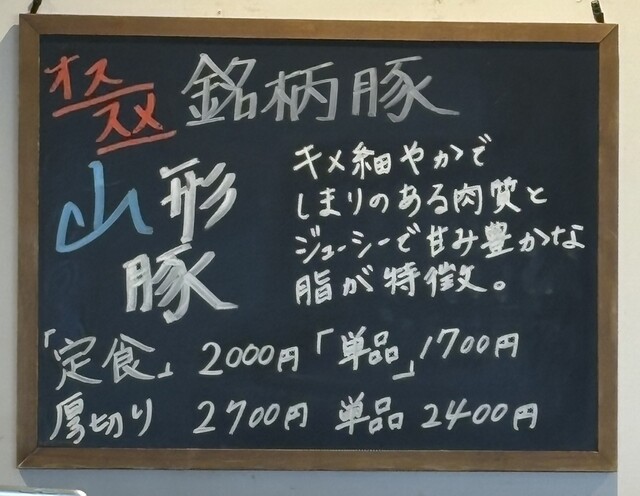 オススメ 銘柄豚
山形豚
キメ細やかで
しまりのある肉質と
ジューシーで甘み豊かな
脂が特徴。
「定食」 2000円 「単品」 1700円
厚切り 2700円 単品 2400円